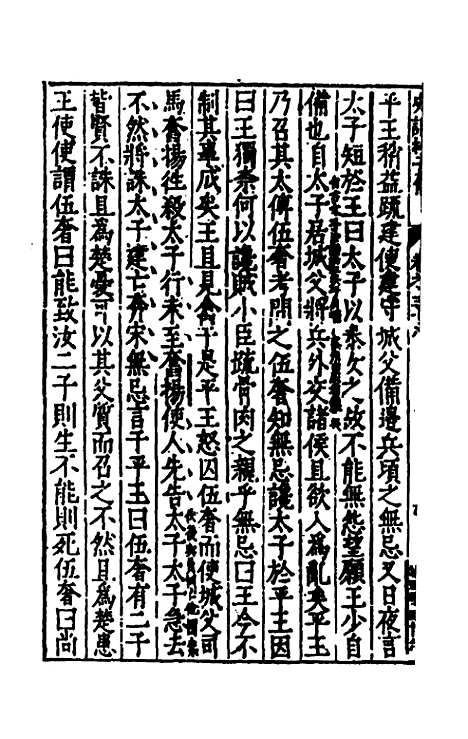 平王稍益疏建使建守城父備邊兵頃之無忌又日夜言
太子短於王曰太子以秦女之故不能無怨望願王少自
備也自太子居城父將兵外交諸侯且欲入為亂矣平王
乃召其太傅伍奢考問之伍奢知無忌讒太子於平王因
曰王獨奈何以讒賊小臣疏骨肉之親乎無忌曰王今不
制其事成矣王且見禽于是平王怒囚伍奢而使城父司
馬奮揚往殺太子行未至奮揚使人先告太子太子急去
不然將誅太子建亡奔宋無忌言于平王曰伍奢有二子
皆賢不誅且為楚憂可以其父質而召之不然且為楚患
王使使謂伍奢曰能致汝二子則生不能則死伍奢曰尚